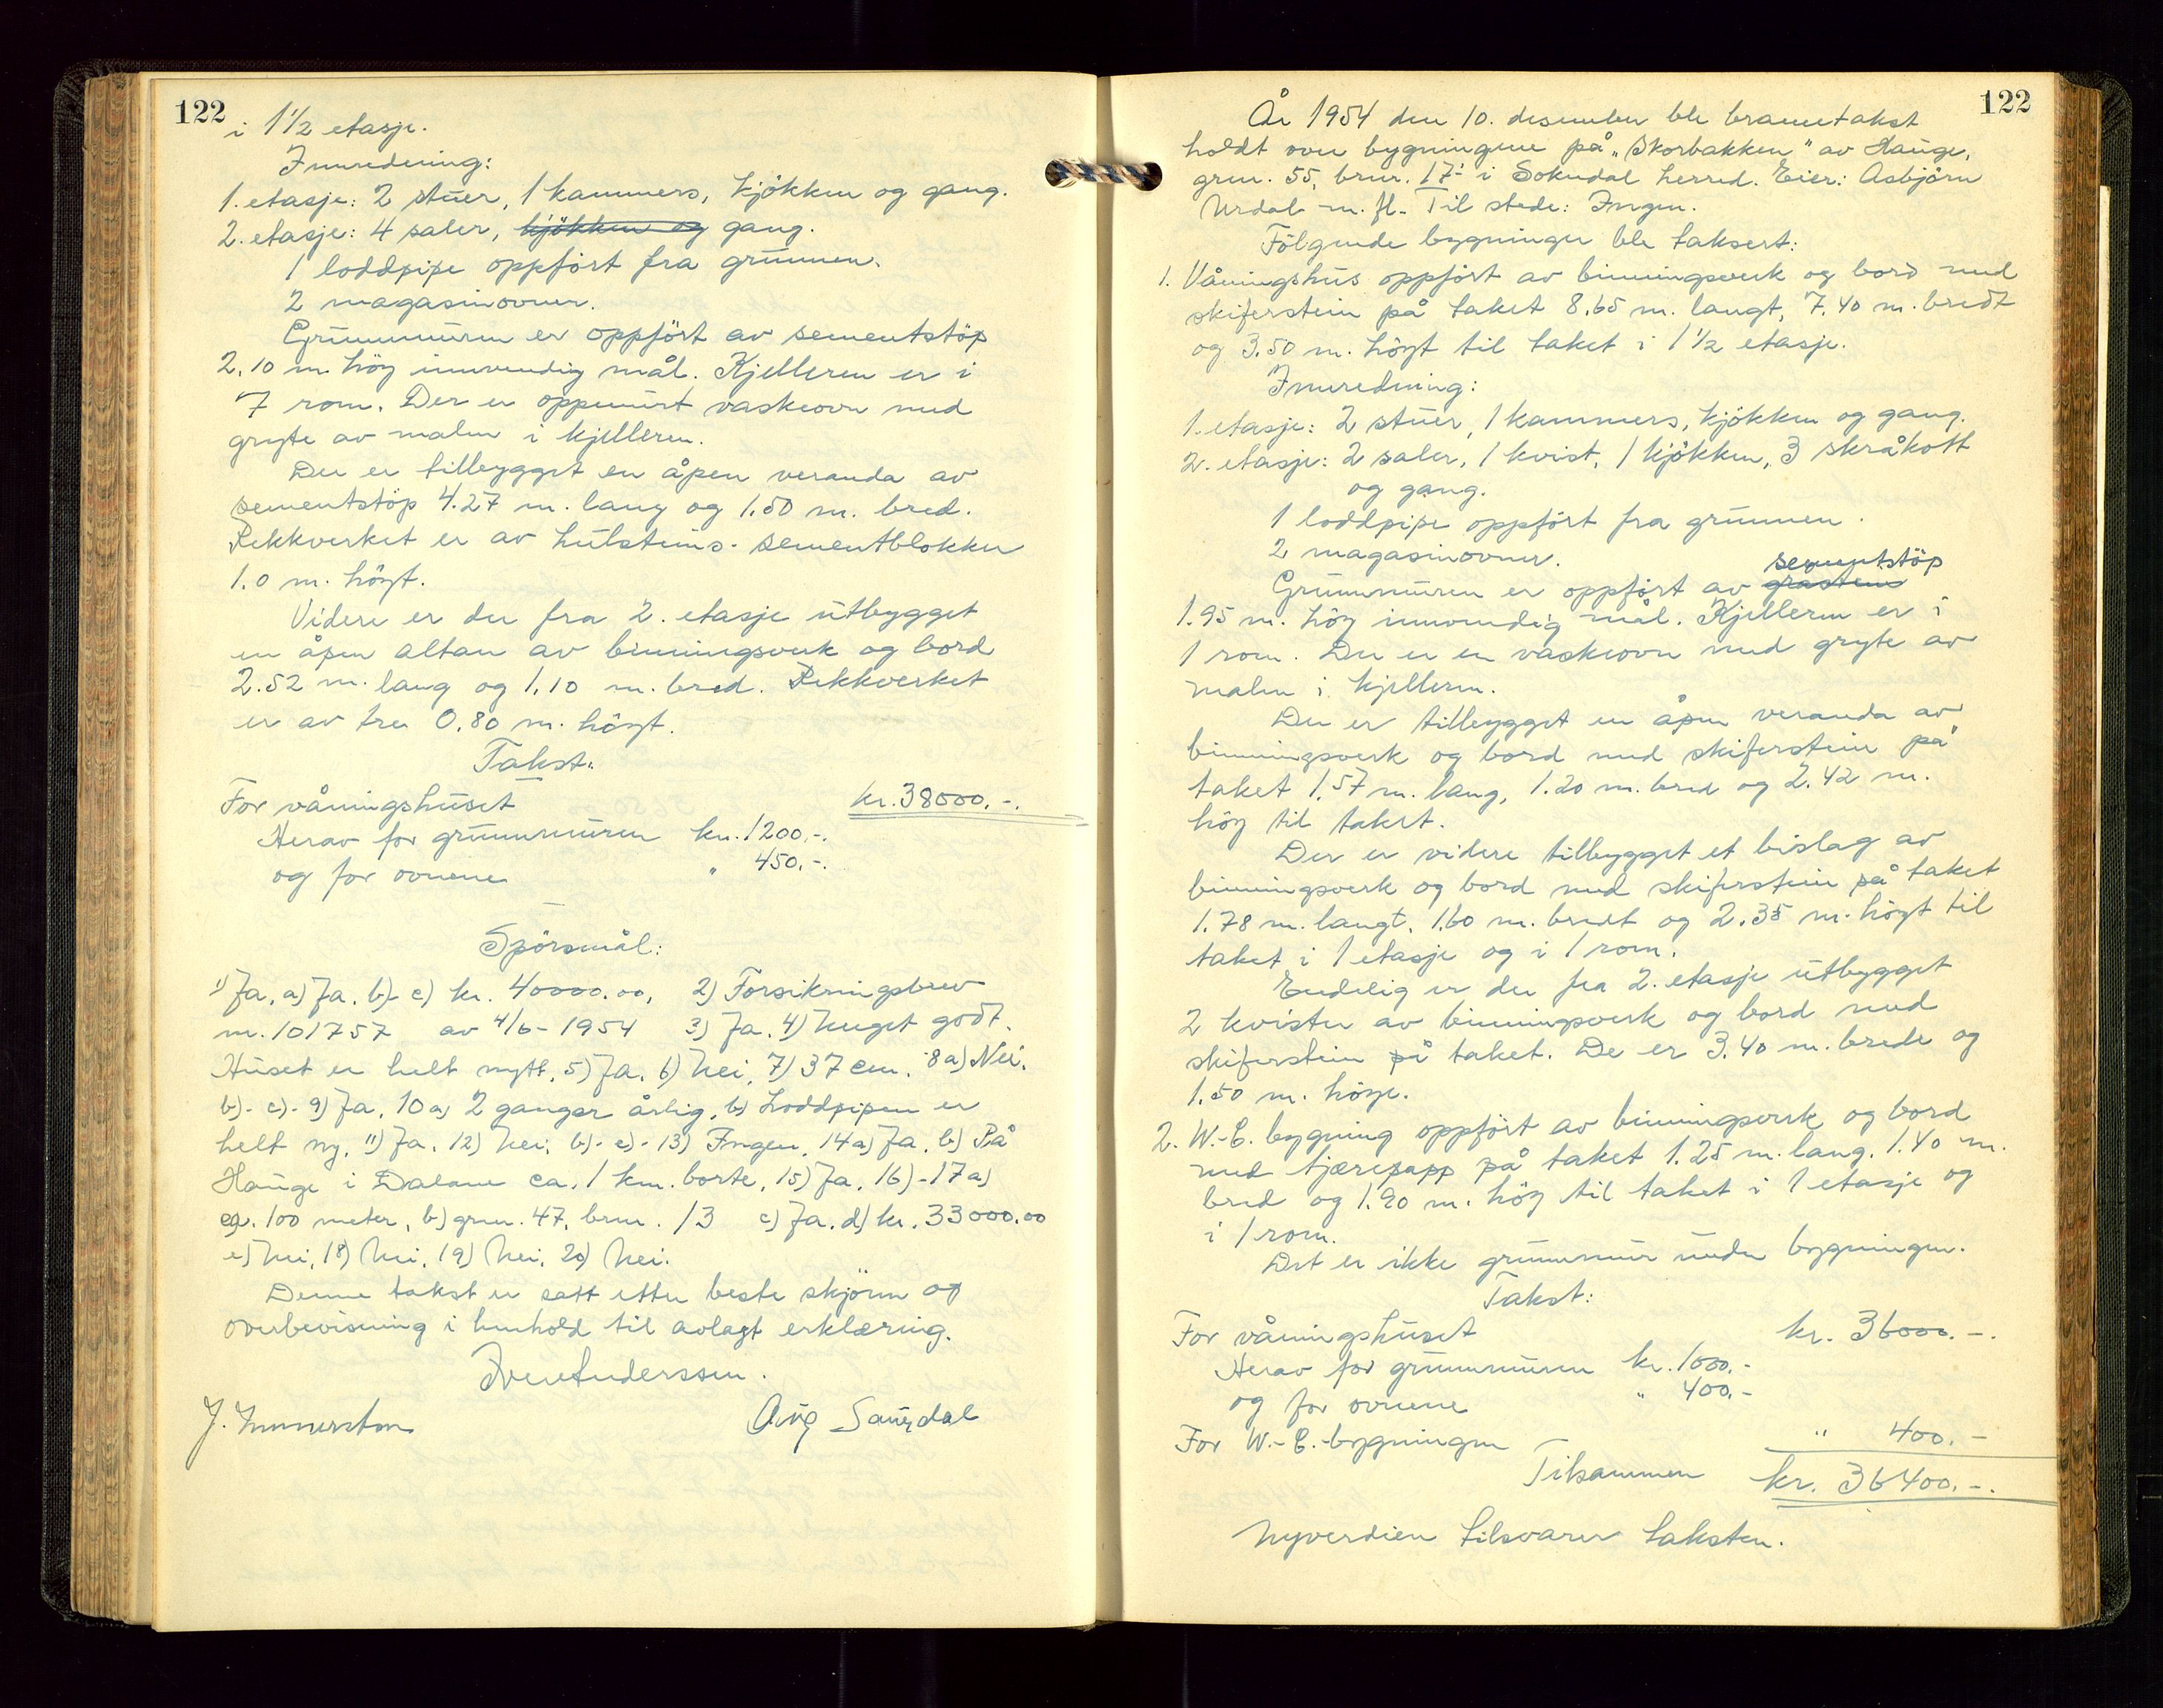 122
i 1 1/2 etasje.
Innredning:
1. etasje: 2 stuer, 1 kammers, kjökken og gang.
2. etasje: 4 saler, kjökken og gang.
1 loddpipe oppfört fra grunnen.
2 magasinovner.
Grunnmuren er oppfört av sementstöp
2,10 m. höy innvendig mål. Kjelleren er i
7 rom. Der er oppmurt vaskeovn med
gryte av malm i kjelleren.
Der er tilbygget en åpen veranda av
sementstöp 4.27 m. lang og 1.50 m. bred.
Rekkverket er av hulsteins- sementblokker
1.0 m. höyt.
Videre er der fra 2. etasje utbygget
en åpen altan av binningsverk og bord
2.52 m. lang og 1,10 m. bred. Rekkverket
er av tre 0.80 m. höyt.
Takst:
For våningshuset kr. 38000.-.
Herav for grunnmuren kr. 1200.-.
og for ovnene " 450.-.
Spörsmål:
1) Ja, a) Ja. b)- c) kr. 40000.00, 2) Forsikringsbrev
nr. 101757 av 4/6-1954 3) Ja. 4) Meget godt.
Huset er helt nytt, 5) Ja. 6) Nei, 7) 37 cm. 8 a) Nei.
b)- c)- 9) Ja, 10 a) 2 ganger årlig, b) Loddpipen er
helt ny, 11) Ja, 12) Nei, b)- c)- 13) Ingen, 14 a) Ja, b) På
Hauge i Dalane ca. 1 km. borte, 15) Ja, 16)- 17 a)
ca. 100 meter, b) grnr. 47, brnr. 13 c) Ja. d) kr. 33000.00
e) Nei, 18) Nei, 19) Nei, 20) Nei.
Denne takst er satt etter beste skjönn og
overbevisning i henhold til avlagt erklæring.
Aug Saurdal
122
År 1954 den 10. desember ble branntakst
holdt over bygningene på "Skorbakken" av Hauge,
grnr. 55, brnr. 17 i Sokndal herred. Eier: Asbjörn
Urdal m. fl. Til stede: Ingen.
Fölgende bygninger ble taksert:
1. Våningshus oppfört av binningsverk og bord med
skiferstein på taket 8.65 m. langt, 7.40 m. bredt
og 3.50 m. höyt til taket i 1 1/2 etasje.
Innredning:
1. etasje: 2 stuer, 1 kammers, kjökken og gang.
2. etasje: 2 saler, 1 kvist, 1 kjökken, 3 skråkott
og gang.
1 loddpipe oppfört fra grunnen.
2 magasinovner.
sementstöp
Grunnmuren er oppfört av gråstens
1.95 m. höy innvendig mål. Kjelleren er i
1 rom. Der er en vaskeovn med gryte av
malm i kjelleren.
Der er tilbygget en åpen veranda av
binningsverk og bord med skiferstein på
taket 1.57 m. lang, 1.20 m. bred og 2.42 m.
höy til taket.
Der er videre tilbygget et bislag av
binningsverk og bord med skiferstein på taket
1.78 m. langt, 1.60 m. bredt og 2.35 m. höyt til
taket i 1 etasje og i 1 rom.
Endelig er der fra 2. etasje utbygget
2 kvister av binningsverk og bord med
skiferstein på taket. De er 3.40 m. brede og
1.50 m. höye.
2. W.-C. bygning oppfört av binningsverk og bord
med tjærepapp på taket 1.25 m. lang, 1.40 m.
bred og 1.90 m. höy til taket i 1 etasje og
i 1 rom.
Det er ikke grunnmur under bygningen.
Takst:
For våningshuset kr. 36000.-.
Herav for grunnmuren kr. 1000.-
og for ovnene " 400.-
For W.-C.-bygningen " 400.-
Tilsammen kr. 36400.-.
Nyverdien tilsvarer taksten.